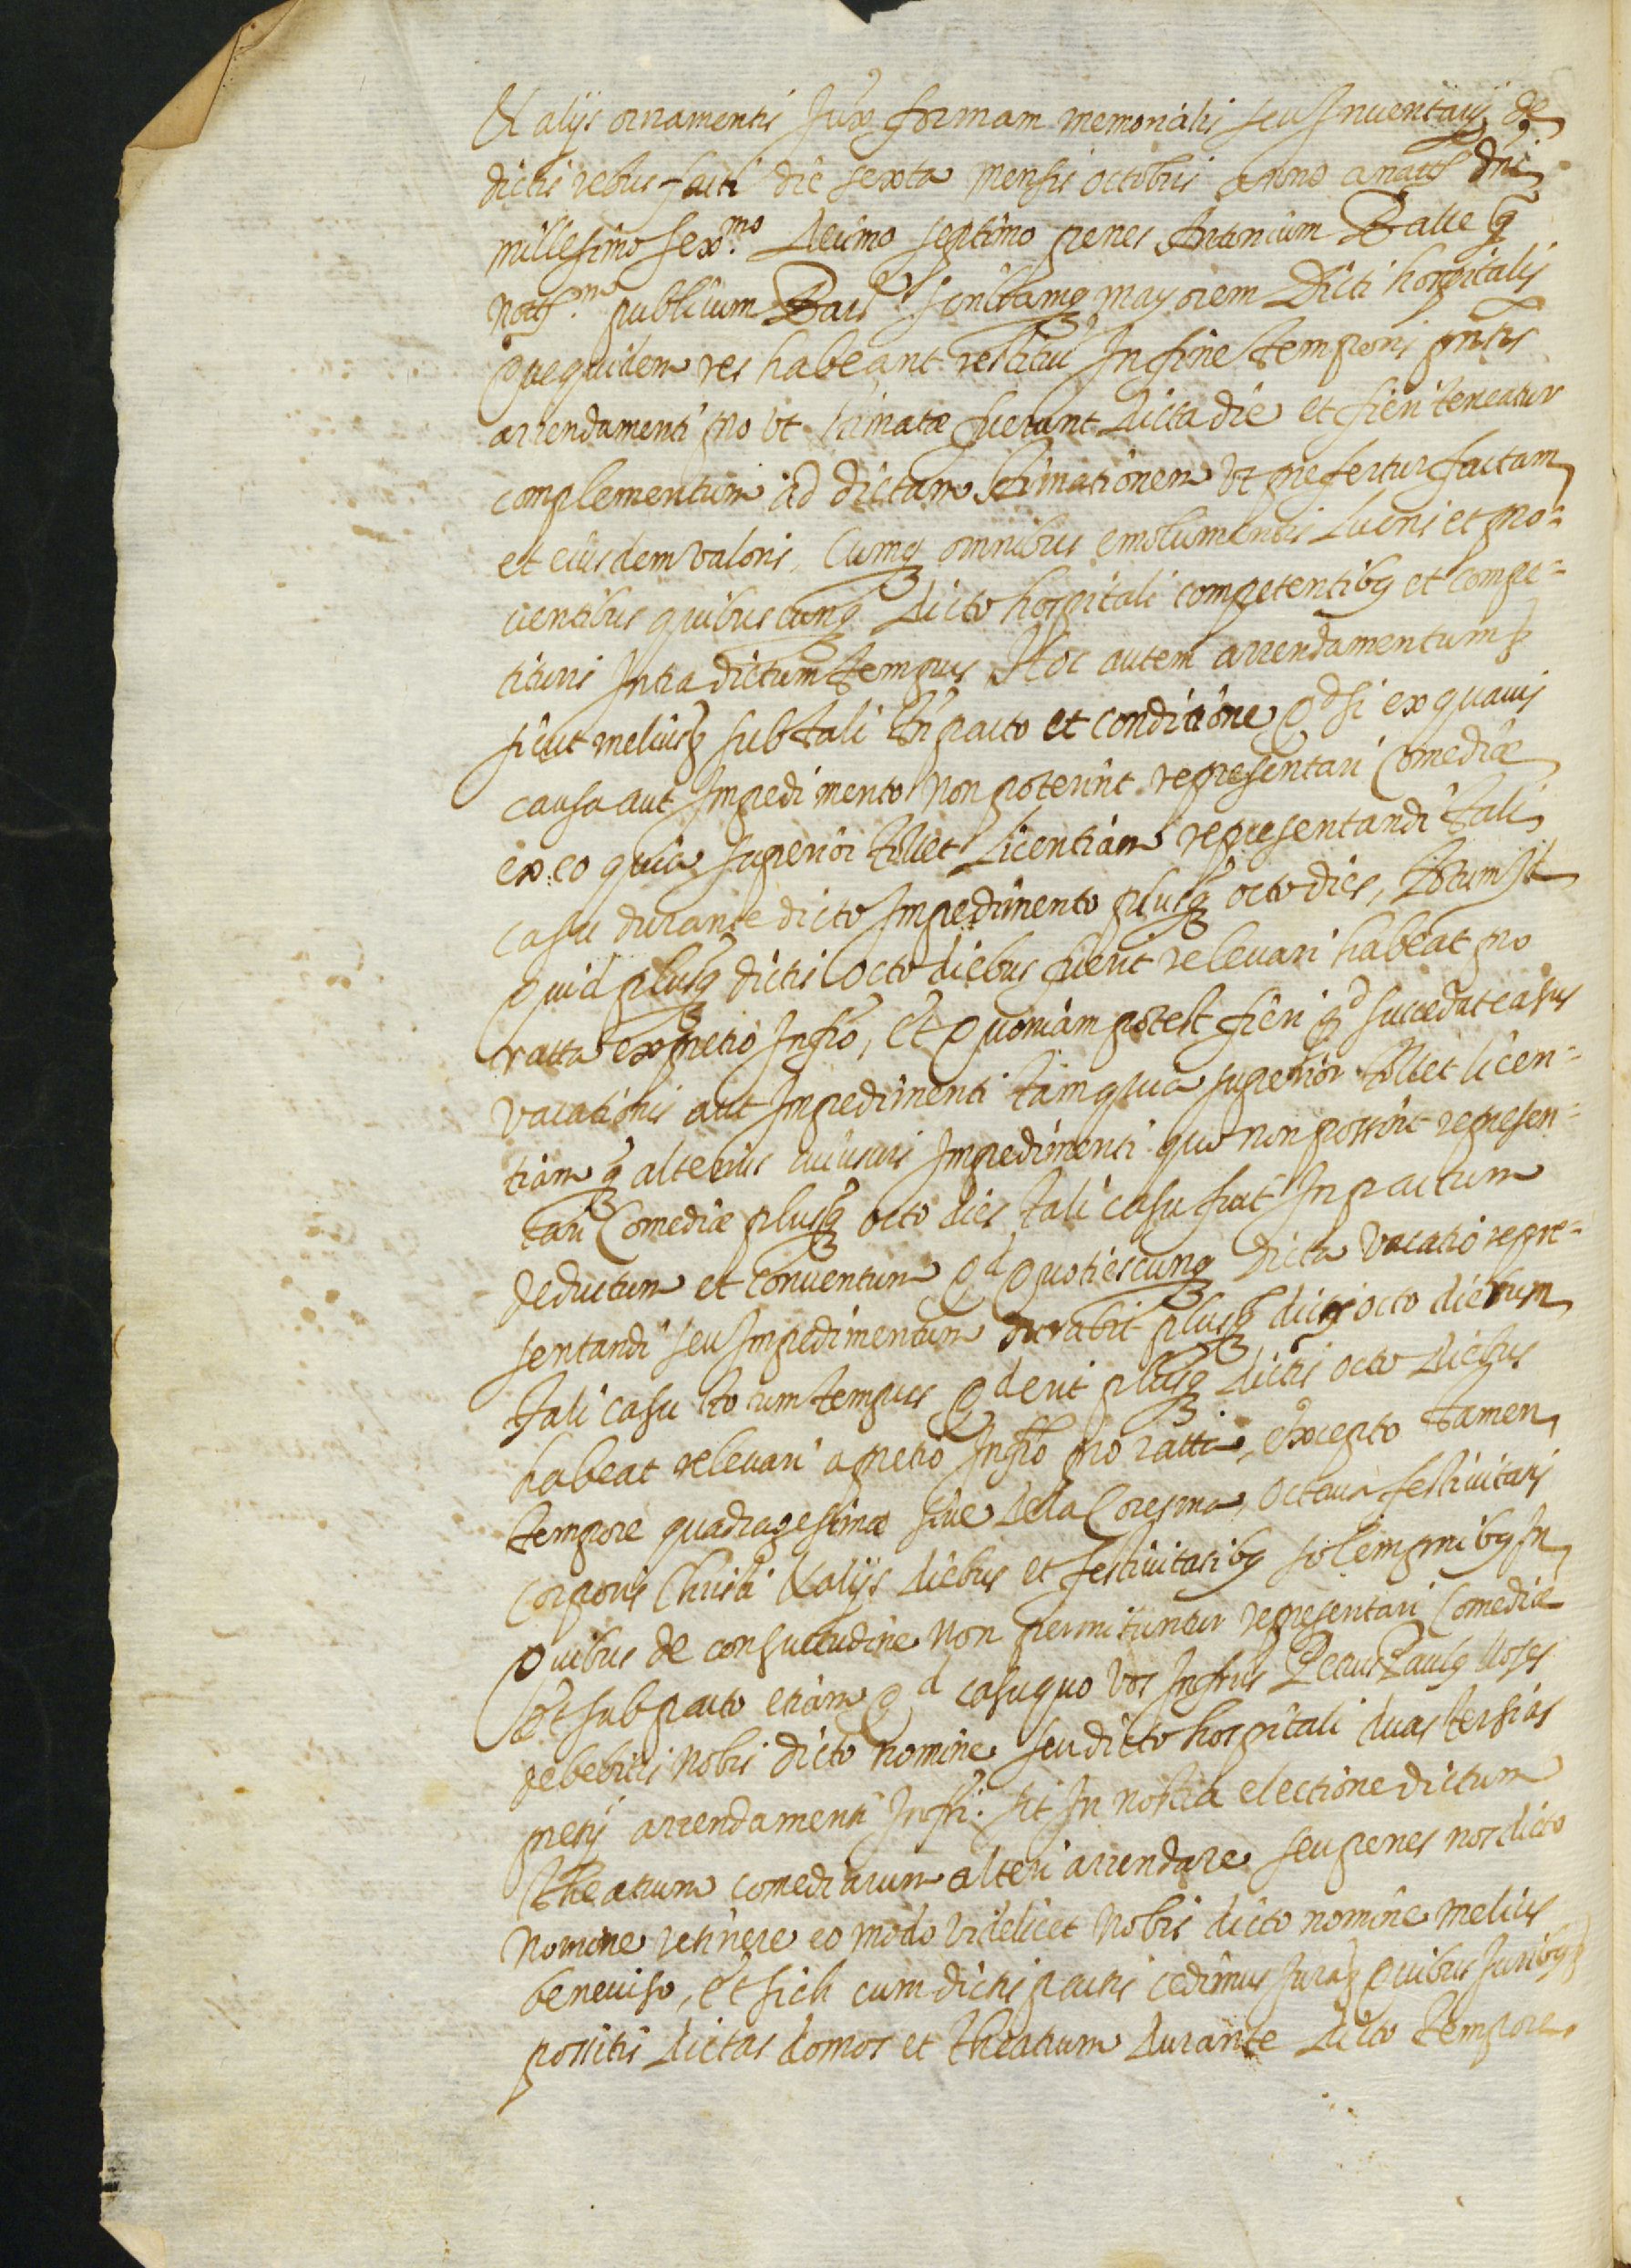 & alijs ornamentis Jux.ᵃ formam memorialis seu Inventarij de
dictis rebus facti die sexta mensis octobris anno a natᵗᵉ dni
millesimo sexᵐᵒ. decimo septimo penes Antonium Batlle q̃
notᵐ. publicum Barᵉ. scribamq̃ mayorem dicti hospitalis
Quequidem res habeant restitui In fine temporis pñtis
arrendamenti pro ut stimatæ fuerunt dicta die et fieri teneatur
complementum ad dictam stimationem ut prefertur factam
et eiusdem valoris, Cumq̃ omnibus emolumentis Lucris et pro=
uentibus quibuscunq̃ dicto hospitali competentibꝫ et compe=
tituris Intra dictum tempus, Hoc autem arrendamentum
sicut melius sub tali tñ pacto et conditione Qᵈ si ex quavis
causa aut Impedimento non poterint representari Comediæ
ex eo quia superior tollet Licentiam representandi tali
casu durante dicto Impedimento plusq̃ octo dies, totum Id
Quid plusq̃ dictis octo diebus fuerit relevari habeat pro
ratta ex pretio Infrõ, Et Quoniam potest fieri qᵈ succedat casus
vacationis aut Impedimenti tam quia superior tollet licen=
tiam q̃ alterius cuiusvis Impedimenti quo non possint represen=
tari Comediæ plusq̃ octo dies tali casu fuit In pactum
deductum et conventum Qᵈ Quotiescunq̃ dicta vacatio repre=
sentandi seu Impedimentum durabit plusq̃ dictis octo dierum
tali casu totum tempus Qᵈ erit plusq̃ dictis octo diebus
habeat relevari a pretio Infrõ pro ratta, excepto tamen
tempore quadragesimæ sive de la Coresma, octava festivitatis
Corporis Christi & alijs diebus et festivitatibꝫ solempnibꝫ In
Quibus de consuetudine non permituntur representari Comediæ
Et sub pacto etiam Qᵈ casuquo vos Infrus Petrus Paulꝫ Roses
debebitis nobis dicto nomine seu dicto hospitali duas tersias
pretij arrendamenti Infri. sit In nostra electione dictum
theatrum comediarum alteri arrendare seu penes nos dicto
nomine retinere eo modo videlicet nobis dicto nomine melius
beneviso, Et sich cum dictis pactis cedimus Jura Quibus Juribꝫ
possitis dictas domos et theatrum durante dicto tempore